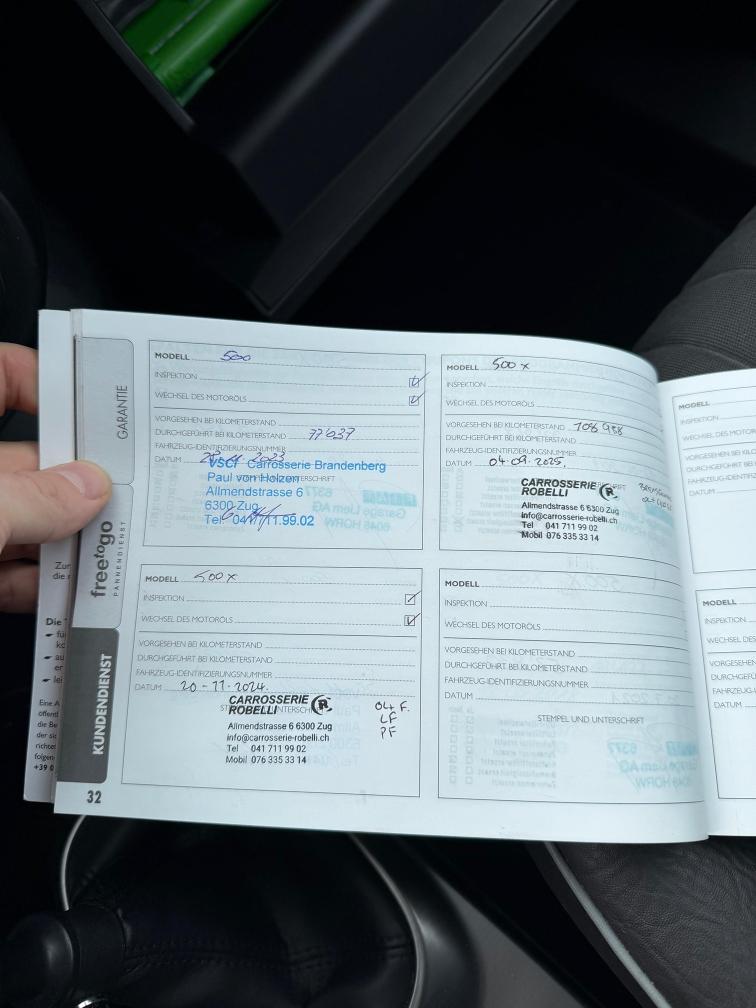 GARANTIE
freetogo
PANNENDIENST
KUNDENDIENST
32
MODELL 500
INSPEKTION
WECHSEL DES MOTORÖLS
VORGESEHEN BEI KILOMETERSTAND
DURCHGEFÜHRT BEI KILOMETERSTAND 77'637
FAHRZEUG-IDENTIFIZIERUNGSNUMMER
DATUM
VSCI Carrosserie Brandenberg
Paul von Holzen
Allmendstrasse 6
6300 Zug
Tel. 041 711.99.02
MODELL 500 X
INSPEKTION
WECHSEL DES MOTORÖLS
VORGESEHEN BEI KILOMETERSTAND 108 988
DURCHGEFÜHRT BEI KILOMETERSTAND
FAHRZEUG-IDENTIFIZIERUNGSNUMMER
DATUM 04.09.2025.
CARROSSERIE
ROBELLI R
Allmendstrasse 6 6300 Zug
info@carrosserie-robelli.ch
Tel 041 711 99 02
Mobil 076 335 33 14
MODELL 500 X
INSPEKTION
WECHSEL DES MOTORÖLS
VORGESEHEN BEI KILOMETERSTAND
DURCHGEFÜHRT BEI KILOMETERSTAND
FAHRZEUG-IDENTIFIZIERUNGSNUMMER
DATUM 20-11-2024.
CARROSSERIE
ROBELLI R
Allmendstrasse 6 6300 Zug
info@carrosserie-robelli.ch
Tel 041 711 99 02
Mobil 076 335 33 14
LF
PF
MODELL
INSPEKTION
WECHSEL DES MOTORÖLS
VORGESEHEN BEI KILOMETERSTAND
DURCHGEFÜHRT BEI KILOMETERSTAND
FAHRZEUG-IDENTIFIZIERUNGSNUMMER
DATUM
STEMPEL UND UNTERSCHRIFT
MODELL
INSPEKTION
DATUM
MODELL
INSPEKTION
DATUM